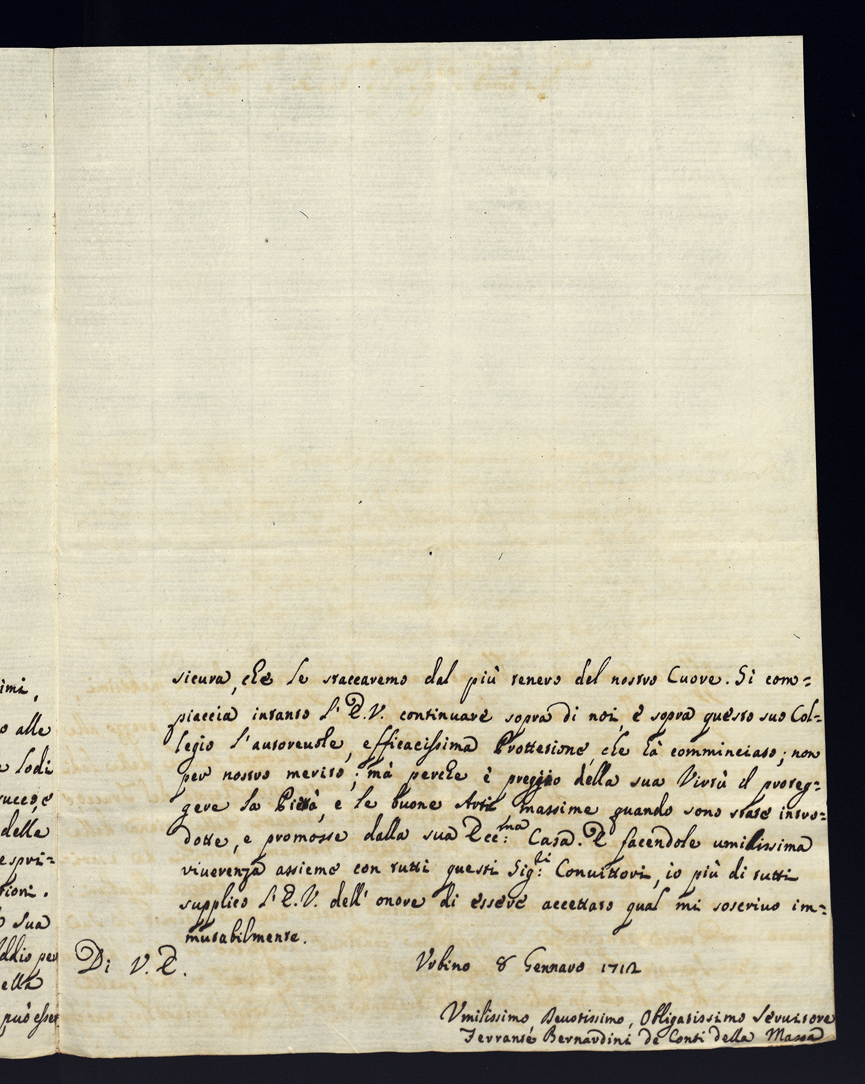 imi,
o alle
e lodi
rucco, e
delle
espri=
tioni.
o sua
Addio per
ella
può esser
sicura, che le staccaremo dal più tenero del nostro Cuore. Si com=
piaccia intanto l'E.V. continuare sopra di noi, e sopra questo suo Col=
legio l'autorevole, efficacissima Prottetione, che hà comminciato; non
per nostro merito; mà perche è preggio della sua Virtù il proteg=
gere la Pietà, e le buone Arti massime quando sono state intro=
dotte, e promosse dalla sua Ecc:ma Casa. E facendole umilissima
riverenza assieme con tutti questi Sig:ri Convittori, io più di tutti
supplico l'E.V. dell'onore di essere accettato qual mi soscrivo im=
mutabilmente.
Di V.E. Urbino 8 Gennaro 1712
Umilissimo, Devotissimo, Obligatissimo Servitore
Ferrante Bernardini de Conti della Massa